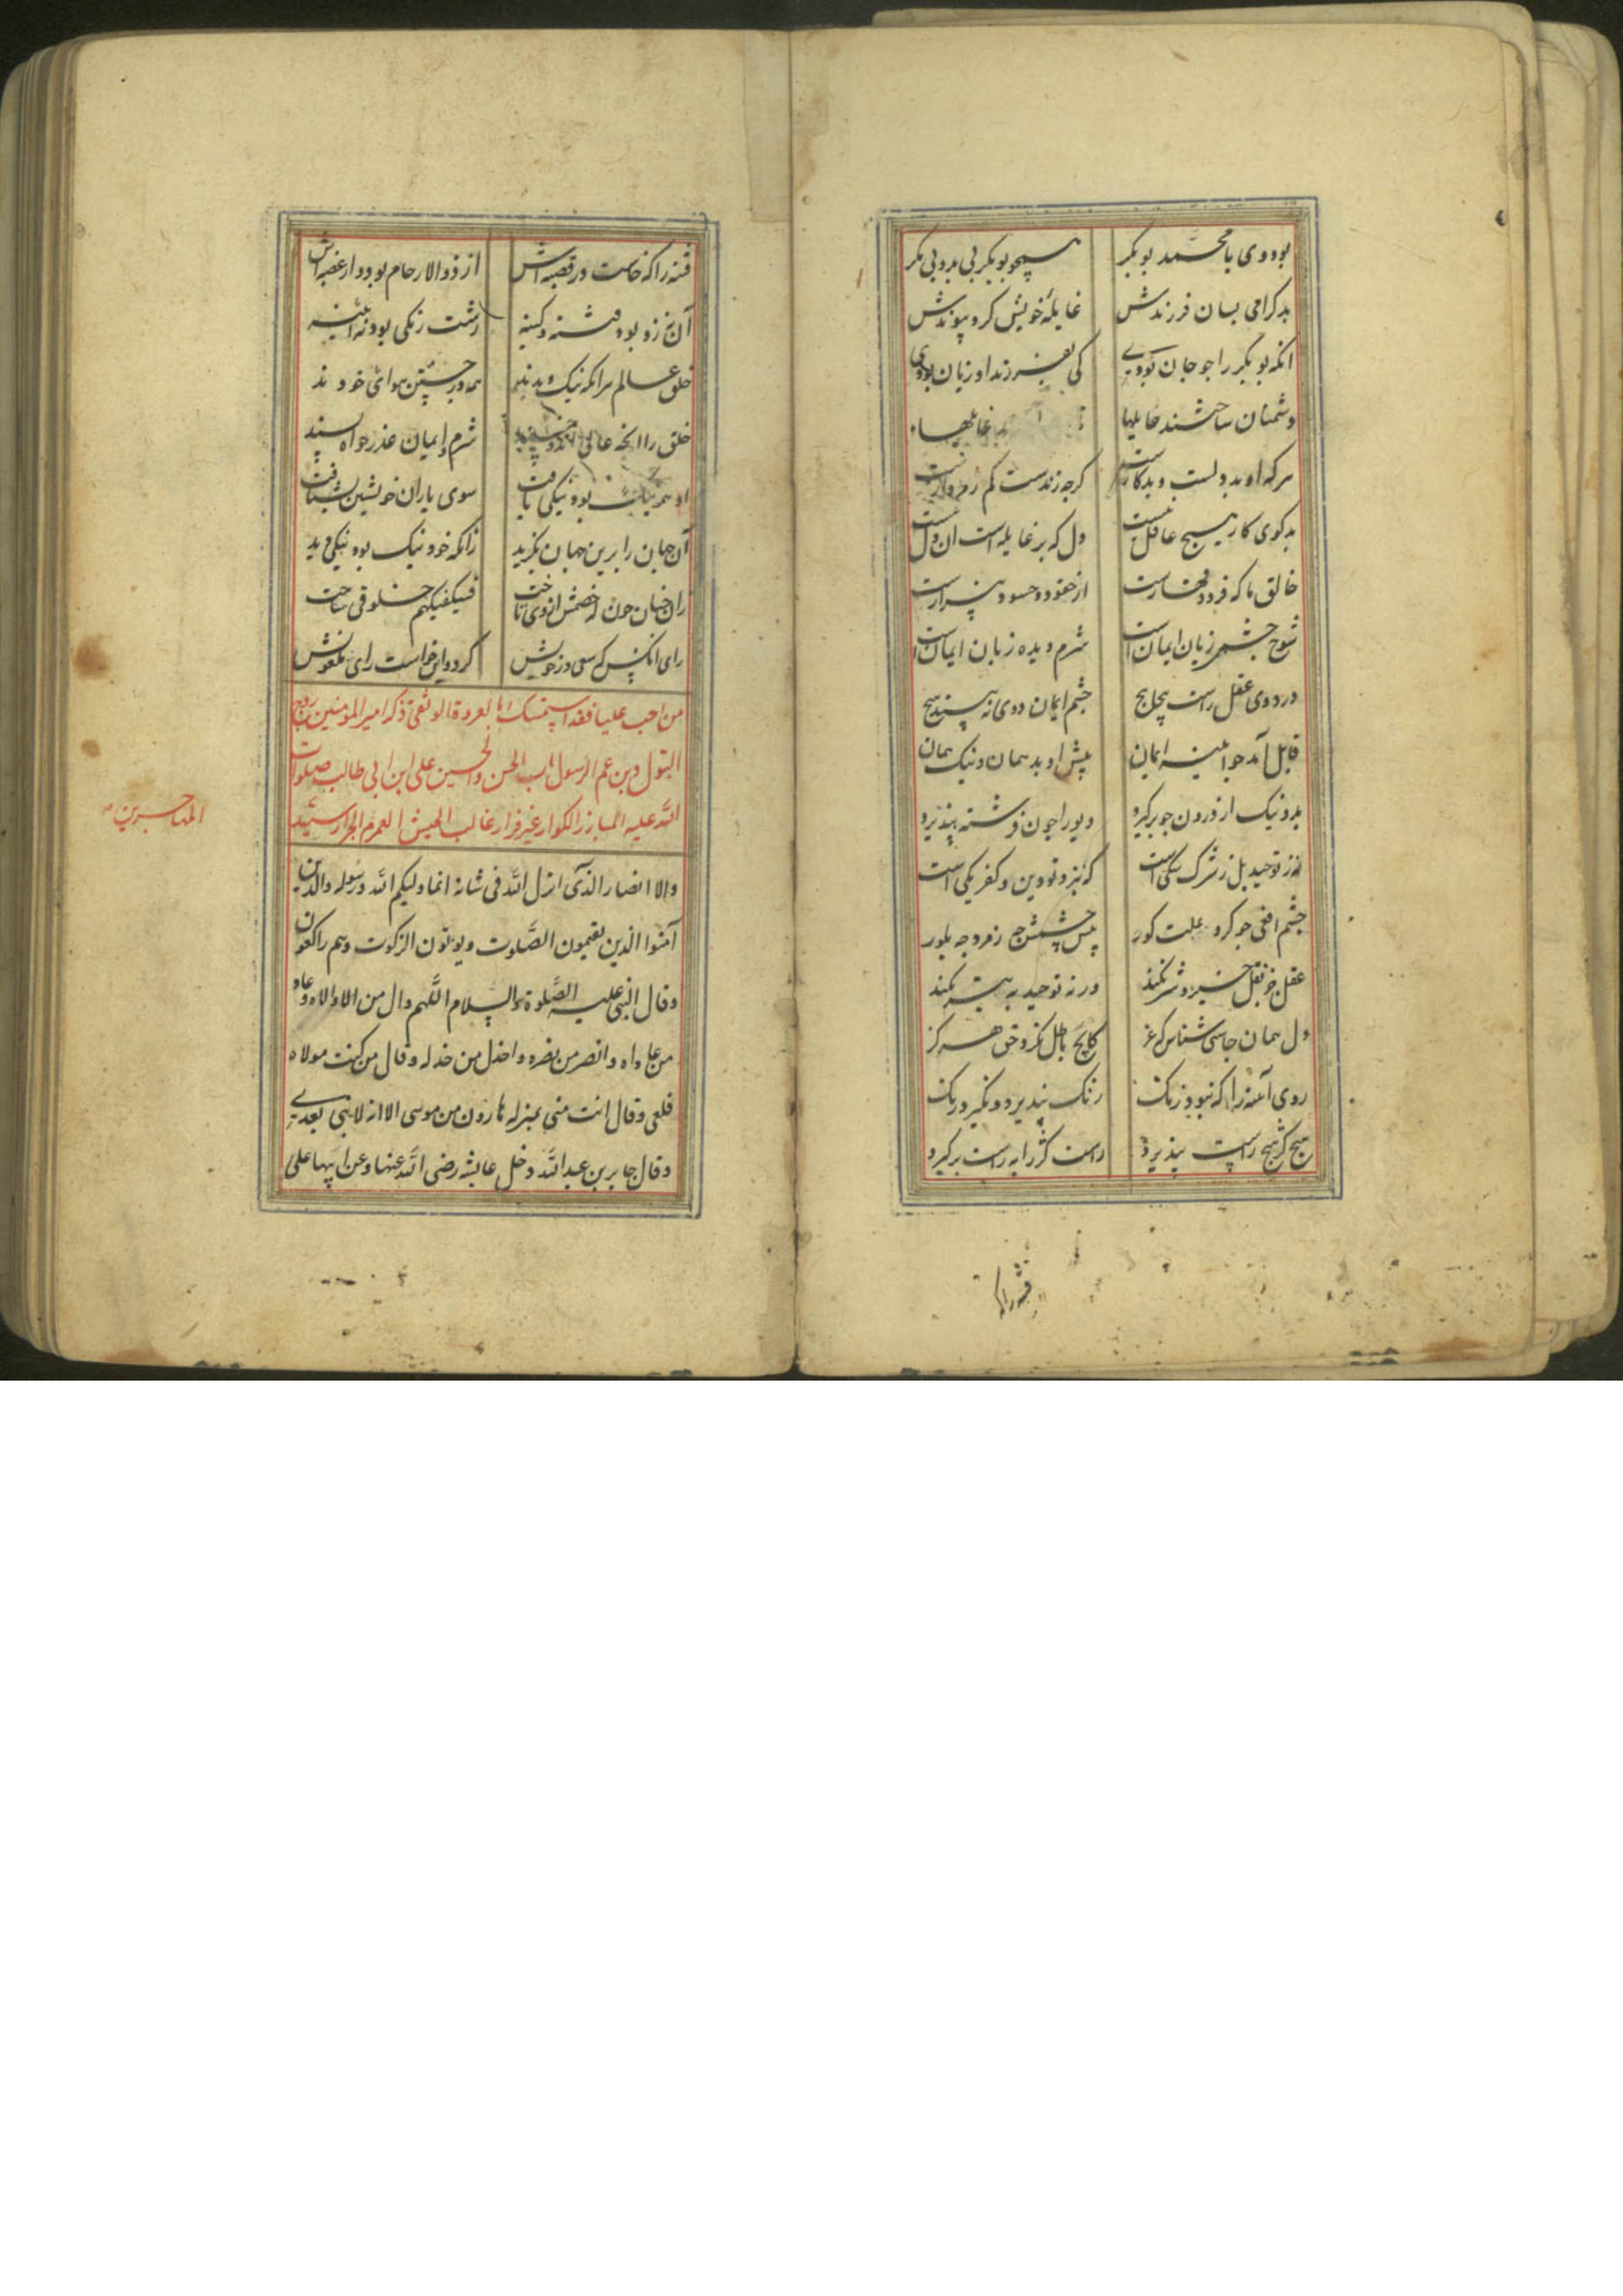 بود وی با محمد بوبکر همچو بوبکر بی بد و بی مکر
بد کرامی بسان فرزندش غایله خویش کرد پیوندش
انکه بوبکر را جو جان بودی کی بفرزند او زیان بودی
دشمنان ساختند حایلها غایلها
هرکه او بد دلست و بدکارست کرجه زندست کم ز مردارست
بدکوی کار هیچ عاقل نیست دل که بر غایله است ان دل نیست
خالق ما که فرد و قهارست از حقود و حسود بیزارست
شوخ جشمی زیان ایمان است شرم دیده زبان ایمان است
در دوی عقل راست پیچاپیچ جشم ایمان دوی نه بیند هیچ
قابل آمد جو اینه ایمان پیش او بد همان و نیک همان
بد و نیک از درون جو برکیرد دیو را جون فرشته بپذیرد
نه ز توحید بل ز شرک شکی است که بنزد تو دین و کفر یکی است
جشم افعی جو کرد علت کور پیش جشمش جه زمرد جه بلور
عقل خود نقل خیر و شر نکند ورنه توحید به بتر نکند
دل همان جاسی شناس کز عز کایج باطل نکرد حق هرکز
روی آینه را که نبود زنک رنک بپذیرد و نکیرد رنک
هیچ کژ هیچ راست نپذیرد راست کژ را به راست برکیرد
فتنه را که
فتنه را که خاست در قصبه اش از ذوالارحام بود و از عصبه اش
آن نه زو بود فتنه و کینه زشت زنکی بود نه آیینه
خلق عالم هر آنکه نیک و بدند همه در جستن هوای خودند
خلق را شرم و ایمان عذرخواه پسند
او همه نیک بود نیکی یافت سوی یاران خویشتن بشتافت
آن جهان را برین جهان بکزید زانکه خود نیک بود نیکی دید
زان جنان خون که خصمش از وی تاخت فسیکفیکهم خلوقی ساخت
رای انکس که سی در خویش کرد و این خواست رای
من احب علیا فقد استمسک بالعروة الوثقی ذکر امیر المومنین زوج
البتول و بن عم الرسول اب الحسن و الحسین علی ابن ابی طالب صلوات
الله علیه المبارز الکرار غیر فرار غالب الجیش العرمرم الجرار سید
المهاجرین
والا انصار الذی انزل الله فی شانه انما ولیکم الله و رسوله والذین
آمنوا الذین یقیمون الصلوت و یوتون الزکوت و هم راکعون
و قال النبی علیه الصلوة والسلام اللهم وال من والاه و عاد
من عاداه و انصر من نصره و اخذل من خذله و قال من کنت مولاه
فعلی و قال انت منی بمنزله هارون من موسی الا انه لا نبی بعدی
و قال جابر بن عبدالله دخل عایشه رضی الله عنها و عن ابیها علی